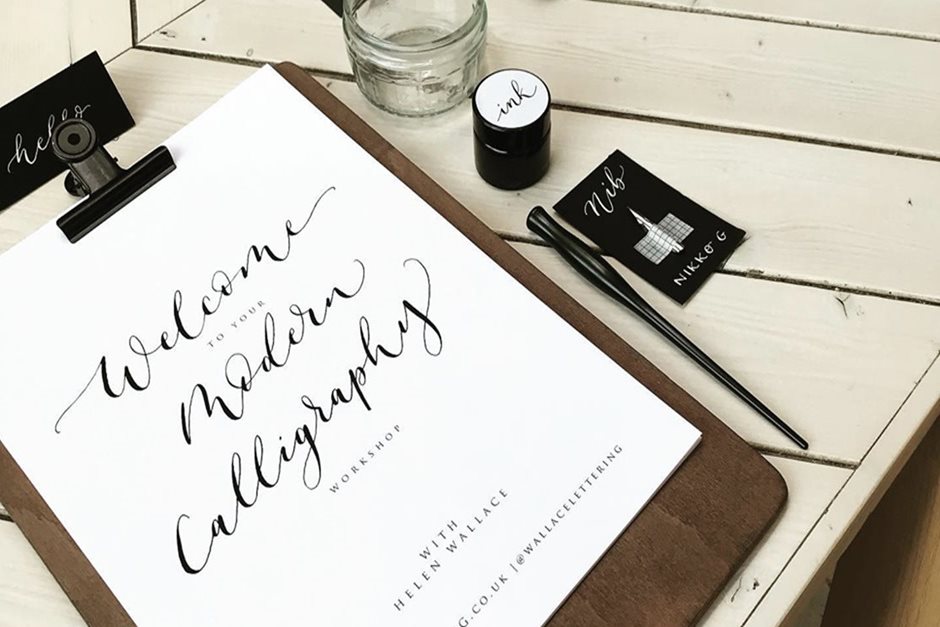 hello
ink
Nib
NIKKO G
Welcome
TO YOUR
Modern
Calligraphy
WORKSHOP
WITH
HELEN WALLACE
G.CO.UK | @WALLACELETTERING